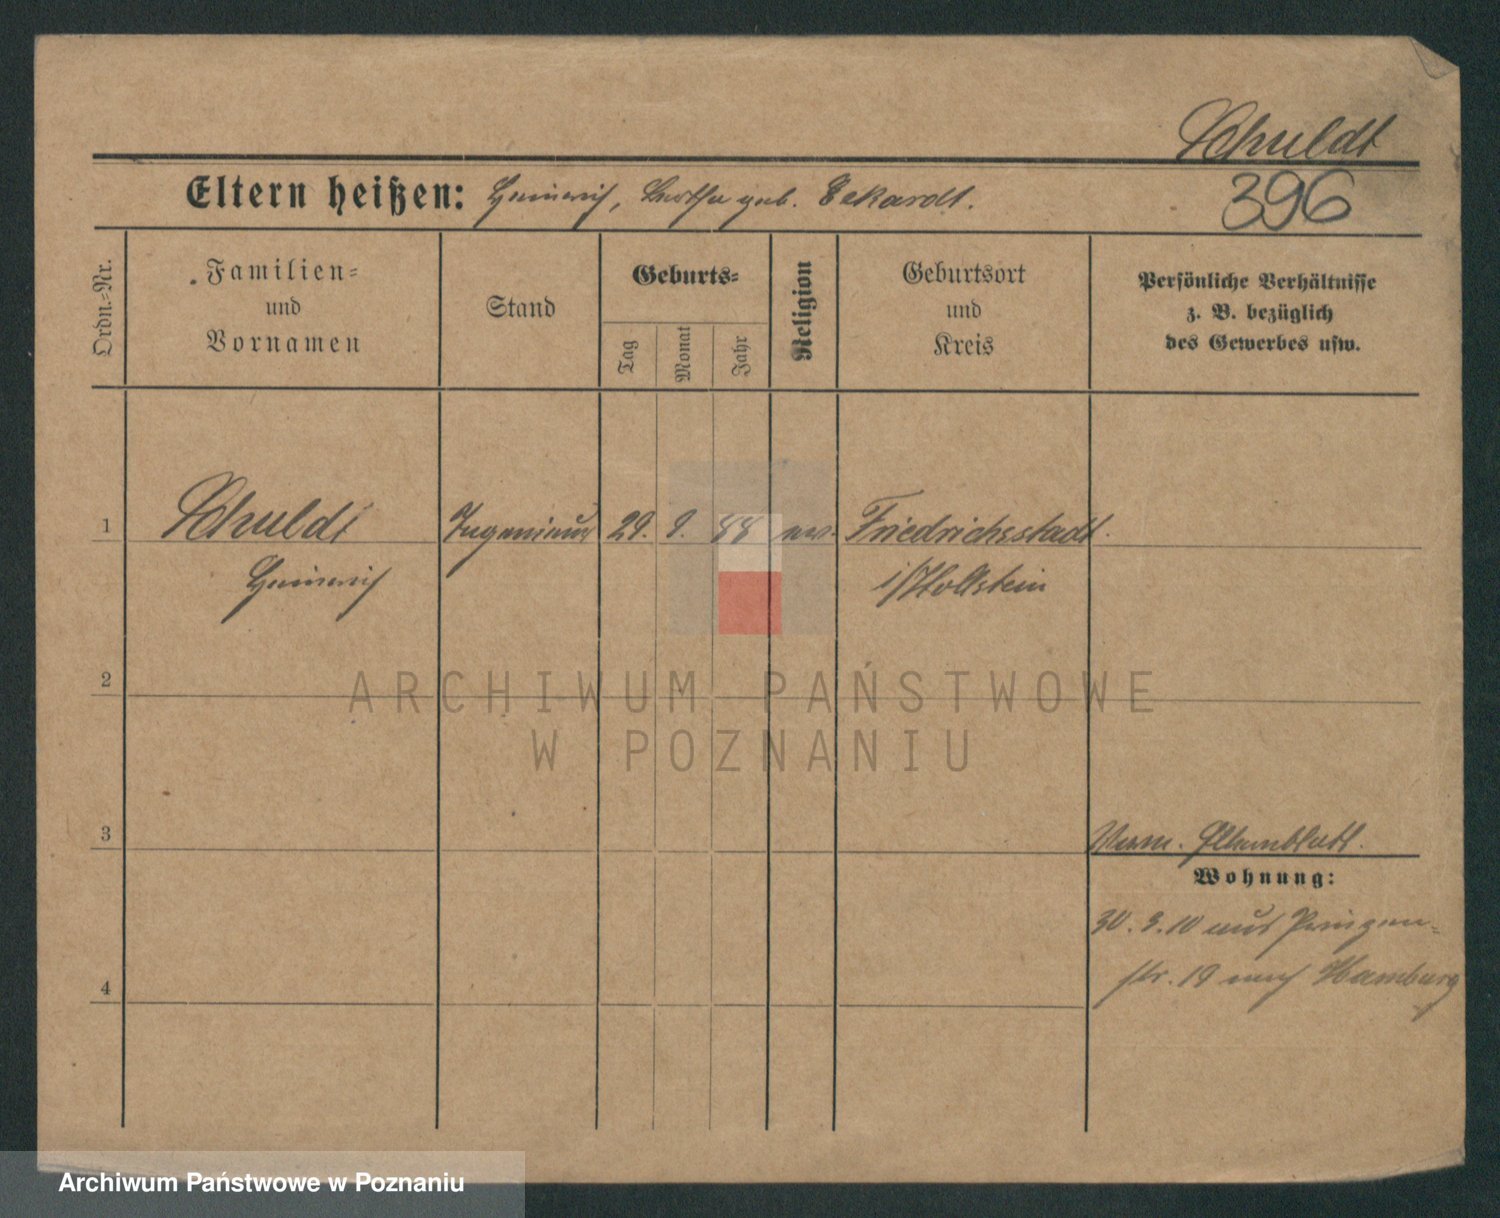 Schuldt
Eltern heißen: Heinrich, Bertha geb. Eckardt.
396
Ordn.-Nr.
Familien-
und
Vornamen
Stand
Geburts-
Tag
Monat
Jahr
Religion
Geburtsort
und
Kreis
Persönliche Verhältnisse
z. B. bezüglich
des Gewerbes usw.
1
Schuldt Ingenieur 29. 9. 88 ev. Friedrichsstadt.
Heinrich
i/Hollstein
ARCHIWUM PAŃSTWOWE
W POZNANIU
2
3
Wohnung:
30. 3. 10 aus Prinzen-
str. 19 nach Hamburg
4
Archiwum Państwowe w Poznaniu